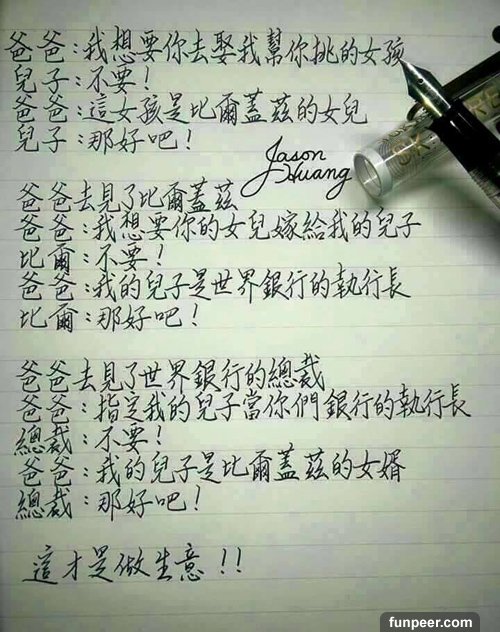 爸爸:我想要你去娶我幫你挑的女孩
兒子:不要!
爸爸:這女孩是比爾蓋茲的女兒
兒子:那好吧!
Jason
Huang
爸爸去見了比爾蓋茲
爸爸:我想要你的女兒嫁給我的兒子
比爾:不要!
爸爸:我的兒子是世界銀行的執行長
比爾:那好吧!
爸爸去見了世界銀行的總裁
爸爸:指定我的兒子當你們銀行的執行長
總裁:不要!
爸爸:我的兒子是比爾蓋茲的女婿
總裁:那好吧!
這才是做生意!!
funpeer.com